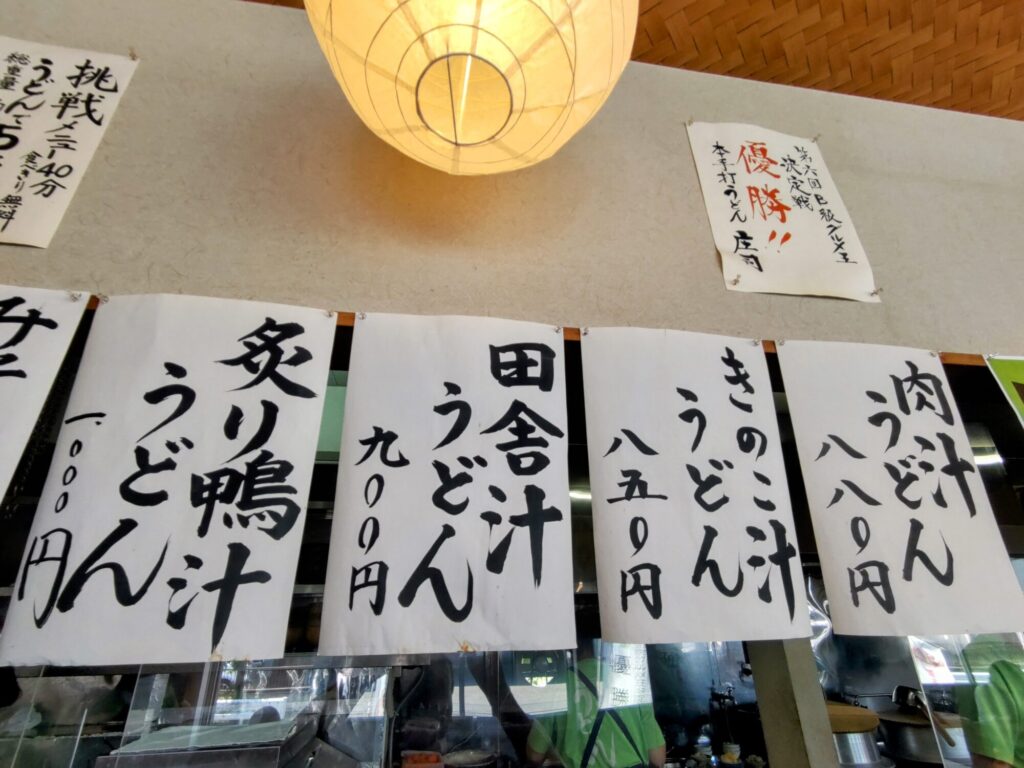 挑戦メニュー40分
うどんで5
食べきり無料
総重量
第六回B級グルメ王
決定戦
優勝!!
本手打うどん 庄司
肉汁
うどん
八八〇円
きのこ汁
うどん
八五〇円
田舎汁
うどん
九〇〇円
炙り鴨汁
うどん
一、〇〇〇円
み
優勝